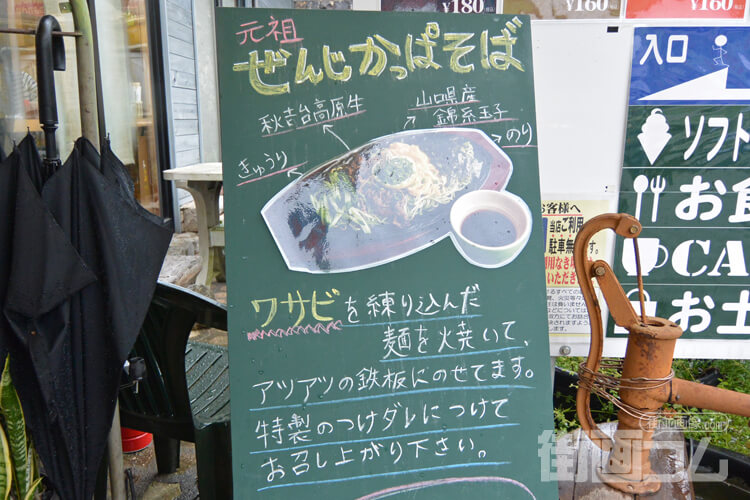 ¥180
¥160
¥160
元祖
ぜんじかっぱそば
秋吉台高原牛
山口県産
錦糸玉子
のり
きゅうり
ワサビを練り込んだ
麺を焼いて、
アツアツの鉄板にのせてます。
特製のつけダレにつけて
お召し上がり下さい。
入口
ソフト
お食
CA
お土
お客様へ
当店ご利用
駐車無
街画コム